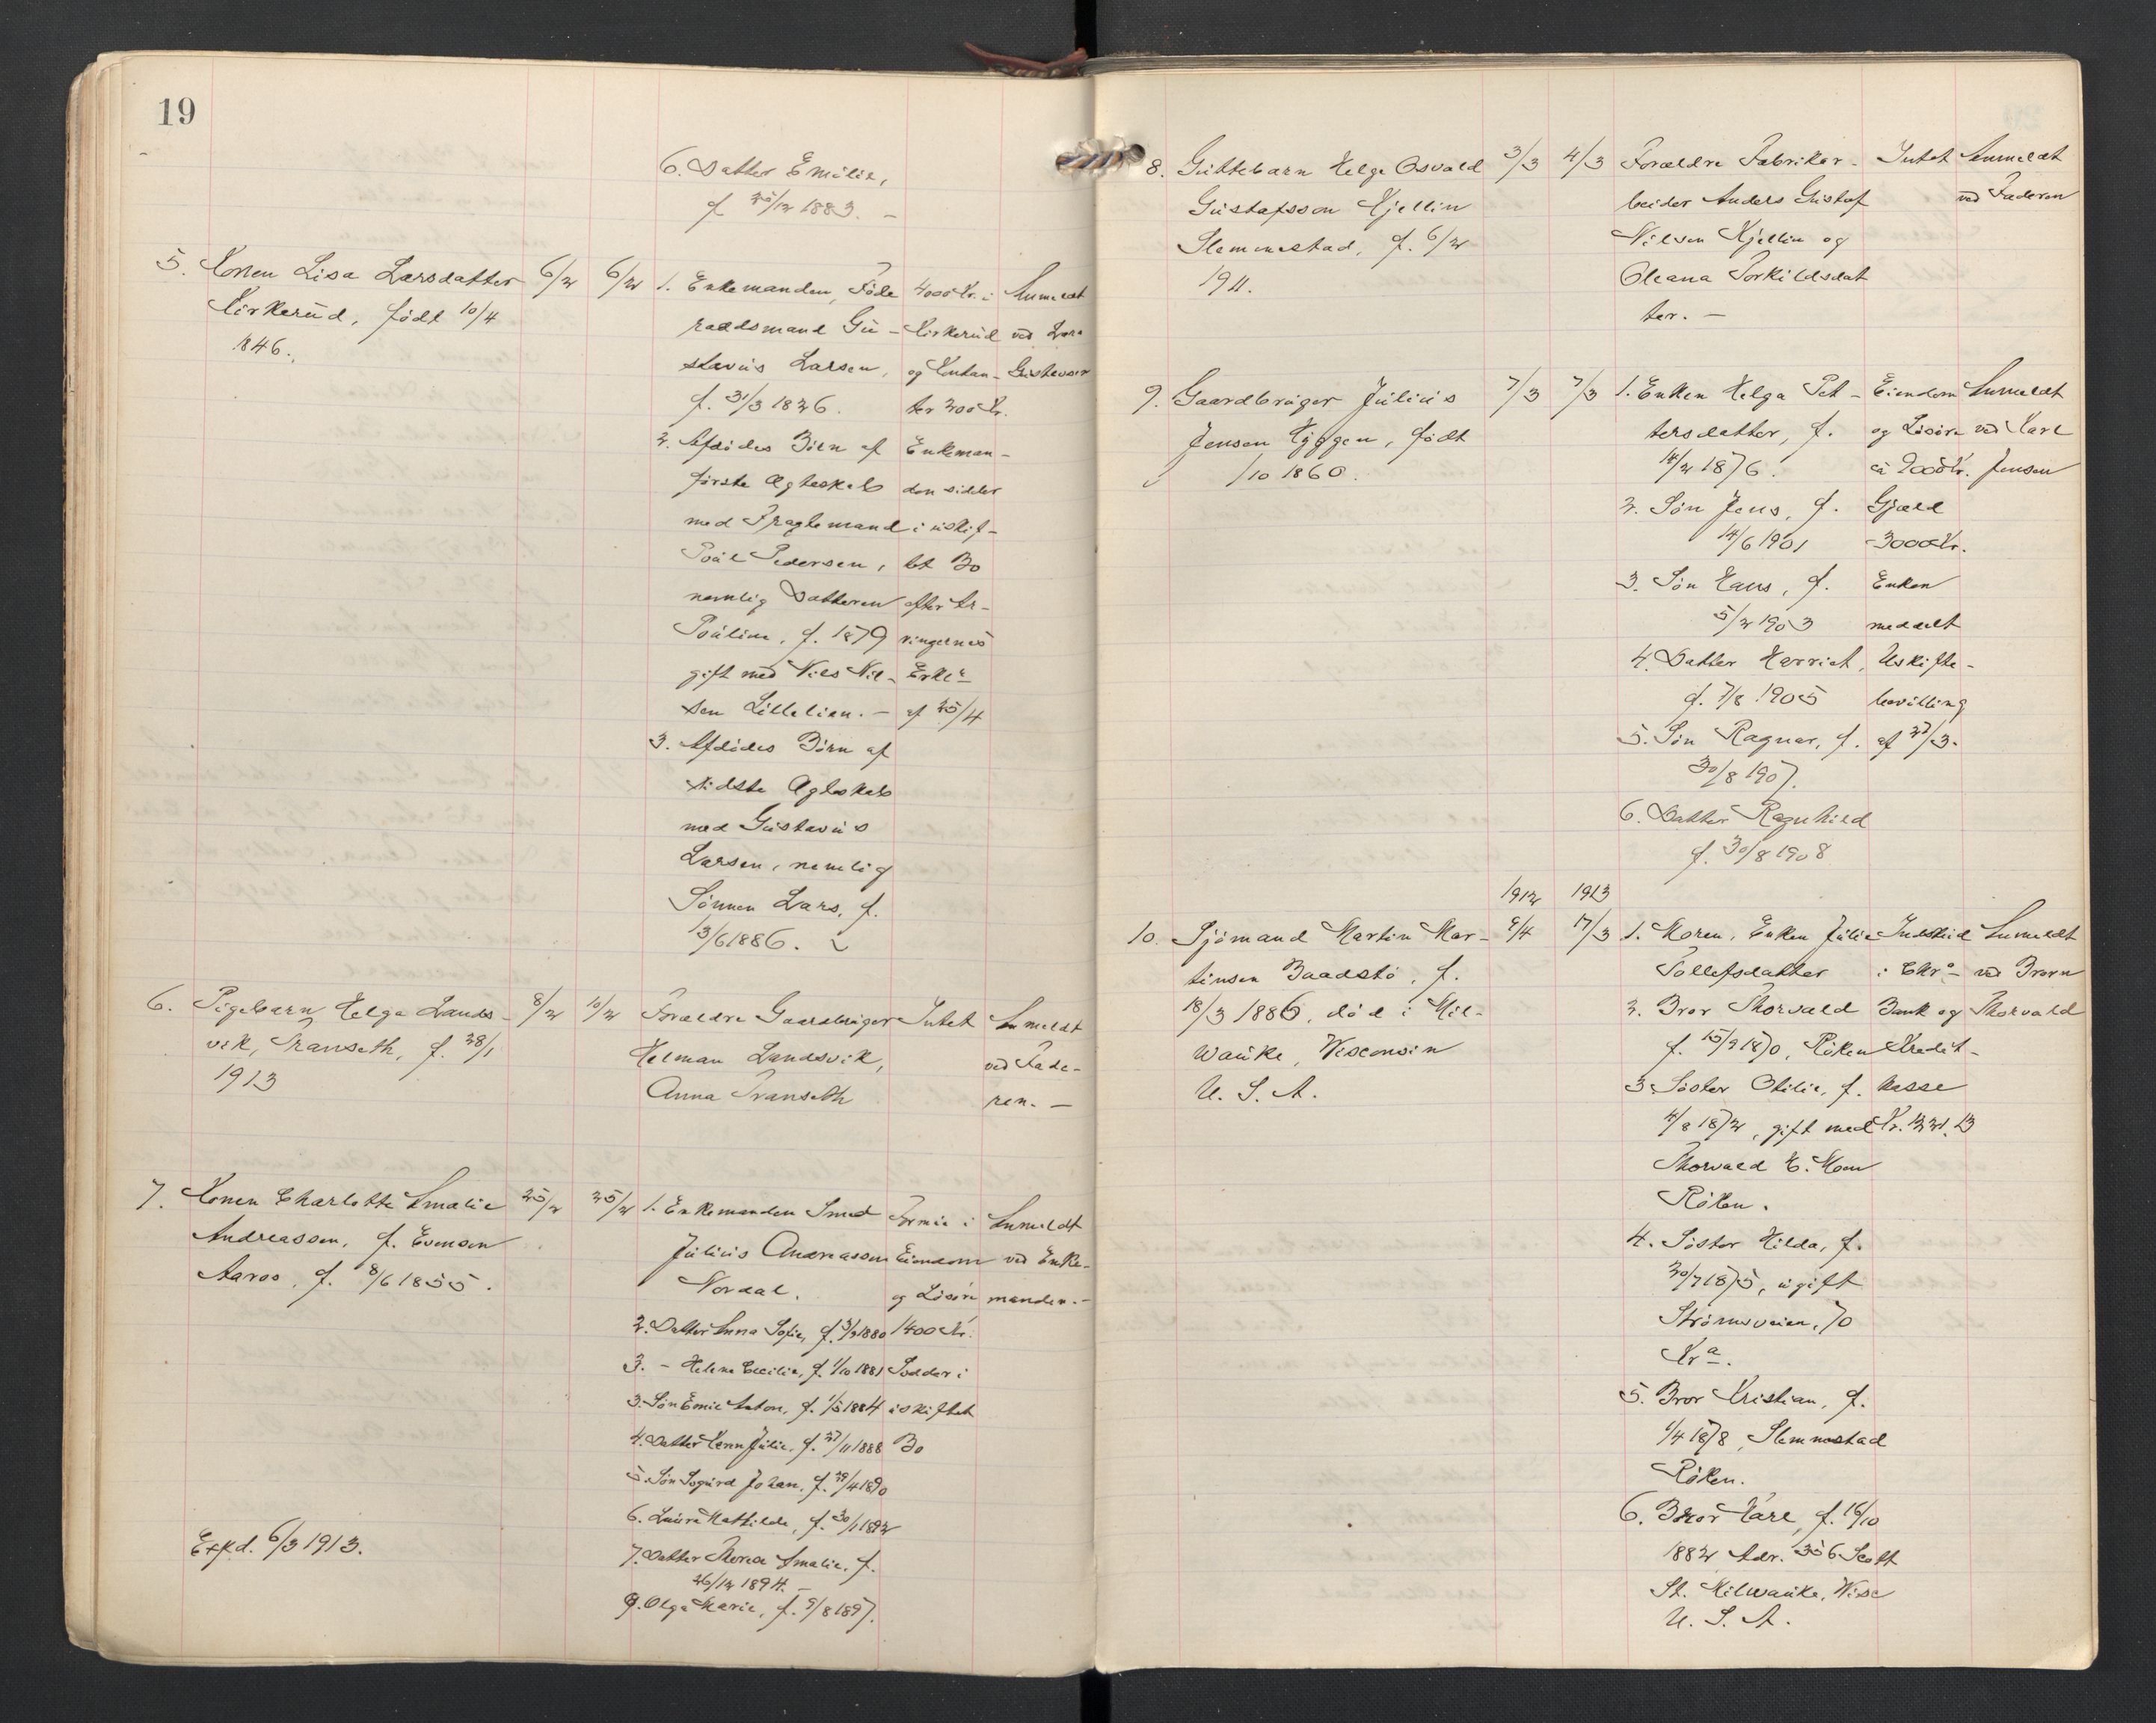 19
6. Datter Emilie,
f 25/12 1883. –
5. Konen Lisa Larsdatter
Kirkerud, født 10/4
1846.
6/2
6/2
1. Enkemanden, Føde
raadsmand Gu-
stavus Larsen,
f. 31/3 1826.
2. Afdødes Børn af
første Ægteskab
med Fragtemand
Poul Pedersen,
nemlig Datteren
Pouline, f. 1879
gift med Nils Nil-
sen Lillelien. –
3. Afdødes Børn af
sidste Ægteskab
med Gustavus
Larsen, nemlig
Sønnen Lars, f.
13/6 1886.
4000 Kr. i
Kirkerud
og Kontan-
ter 200 Kr.
Enkeman-
den sidder
i uskif-
tet Bo
efter Ar-
vingernes
Erkl.
af 25/4
Anmeldt
ved Lars
Gustavsen
6. Pigebarn Helga Lands-
vik, Transeth, f. 28/1
1913
8/2
10/2
Forældre Gaardbruger
Helman Landsvik,
Anna Transeth
Intet
Anmeldt
ved Fade-
ren. –
7. Konen Charlotte Amalie
Andreassen, f. Evensen
Aaros, f. 8/6 1855.
25/2
25/2
1. Enkemanden Smed
Julius Andreassen
Nordal.
2. Datter Anna Sofie, f. 3/9 1880
3. – Helene Cecilie, f. 1/10 1881
3. Søn Emil Anton, f. 1/5 1884
4. Datter Jenn Julie, f. 27/11 1888
5. Søn Sogurd Johan, f. 29/4 1890
6. Laura Mathilde, f. 30/1 1892
7. Datter Thora Amalie, f.
26/12 1894. –
9. Olga Marie, f. 9/8 1897.
Formue i
Eiendom
og Løsøre
1400 Kr.
Sodder i
uskiftet
Bo
Anmeldt
ved Enke-
manden. –
Exfd. 6/3 1913.
8. Guttebarn Helge Osvald
Gustafsson Kjellin
Slemmestad, f. 6/2
1911.
3/3
4/3
Forældre Fabrikar-
beider Anders Gustaf
Nilsen Kjellin og
Oleana Torkildsdat
ter. –
Intet
Anmeldt
ved Faderen
9. Gaardbruger Julius
Jensen Hyggen, født
/10 1860.
7/3
7/3
1. Enken Helga Pet-
tersdatter, f.
14/2 1876.
2. Søn Jens, f.
14/6 1901
3. Søn Hans, f.
5/2 1903
4. Datter Harriet,
f. 7/8 1905
5. Søn Ragnar, f.
30/8 1907.
6. Datter Ragnhild
f. 30/8 1908
Eiendom
og Løsøre
ca 9000 Kr.
Gjæld
3000 Kr.
Enken
meddelt
Uskifte-
bevilling
af 27/3.
Anmeldt
ved Karl
Jensen
1912
1913
10. Sjømand Martin Mar-
tinsen Baadstø, f.
18/3 1886, død i Mil-
wauke, Wisconsin
U. S. A.
9/4
17/3
1. Moren, Enken Julie
Tollefsdatter
2. Bror Thorvald
f. 15/9 1870, Røken
3. Søster Otilie, f.
4/8 1872, gift med
Thorvald E. Moen
Røken.
4. Søster Hilda, f.
30/7 1875, ugift
Strømsveien, 70
Kra.
5. Bror Kristian, f.
1/4 1878, Slemmestad
Røken.
6. Bror Karl, f. 16/10
1882 Adr. 356 Scott
St. Milwauke, Wisc
U. S. A.
Indskud
i Chra
Bank og
Kredit-
kasse
Kr. 1221.13
Anmeldt
ved Broren
Thorvald